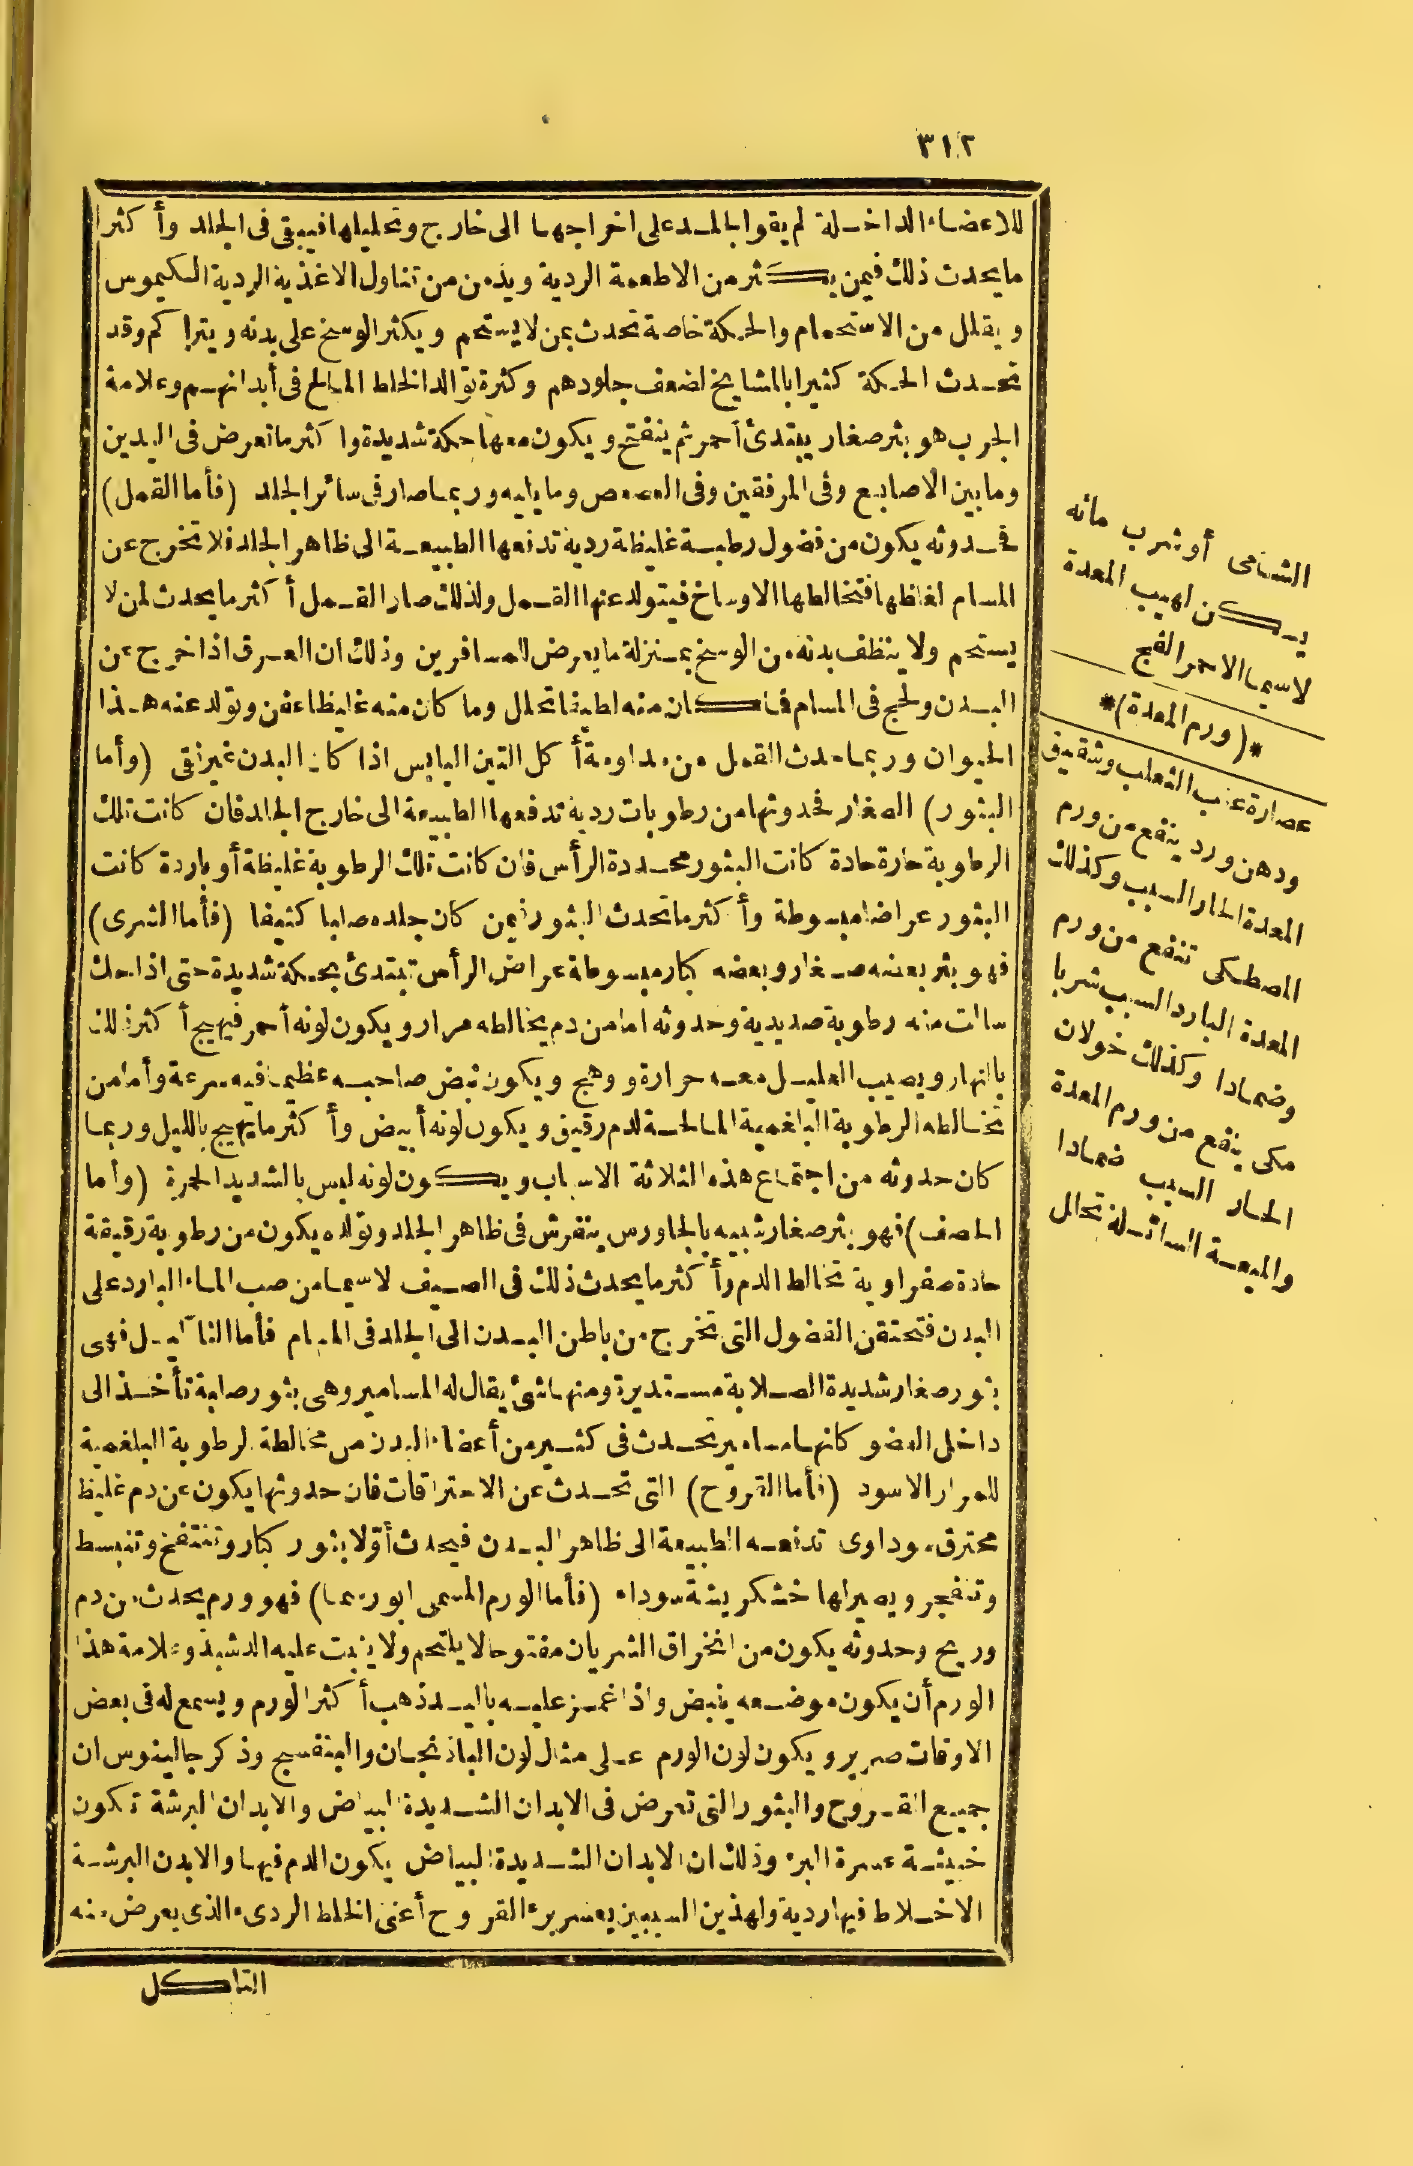 ٣١٢
للاعضاء الداخلة لم يقوا بالجلد على اخراجها الى خارج وتحليلها فيبقى فى الجلد وأكثر
ما يحدث ذلك فيمن يكثر من الاطعمة الردية ويدمن من تناول الاغذية الردية الكيموس
ويقلل من الاستحمام والحكة خاصة تحدث بمن لا يستحم ويكثر الوسخ على بدنه ويتراكم وقد
تحدث الحكة كثيرا بالمشايخ لضعف جلودهم وكثرة تولد الخلط المالح فى أبدانهم وعلامة
الجرب هو بثر صغار يبتدئ أحمر ثم ينفتح ويكون معها حكة شديدة وأكثر ما تعرض فى اليدين
وما بين الاصابع وفى المرفقين وفى العصعص وما يليه وربما صار فى سائر الجلد (فأما القمل)
فحدوثه يكون من فضول رطبة غليظة ردية تدفعها الطبيعة الى ظاهر الجلد فلا تخرج عن
المسام لغلظها فتخالطها الاوساخ فيتولد عنها القمل ولذلك صار القمل أكثر ما يحدث لمن لا
يستحم ولا ينظف بدنه من الوسخ بمنزلة ما يعرض للمسافرين وذلك ان العرق اذا خرج عن
البدن ولحج فى المسام فما كان منه لطيفا تحلل وما كان منه غليظا عفن وتولد عنه هذا
الحيوان وربما حدث القمل من مداومة أكل التين اليابس اذا كان البدن غير نقى (وأما
البثور) الصغار فحدوثها من رطوبات ردية تدفعها الطبيعة الى خارج الجلد فان كانت تلك
الرطوبة حارة حادة كانت البثور محددة الرأس فان كانت تلك الرطوبة غليظة أو باردة كانت
البثور عراضا مبسوطة وأكثر ما تحدث البثور فيمن كان جلده صلبا كثيفا (فأما الشرى)
فهو بثر بعضه صغار وبعضه كبار مبسوطة عراض الرأس تبتدئ بحكة شديدة حتى اذا حك
سالت منه رطوبة صديدية وحدوثه اما من دم يخالطه مرار ويكون لونه أحمر فيهيج أكثر ذلك
بالنهار ويصيب العليل معه حرارة ووهيج ويكون نبض صاحبه عظيما فيه سرعة وأما من
تخالطه الرطوبة البلغمية المالحة لدم رقيق ويكون لونه أبيض وأكثر ما يهيج بالليل وربما
كان حدوثه من اجتماع هذه الثلاثة الاسباب ويكون لونه ليس بالشديد الحمرة (وأما
الحصف) فهو بثر صغار شبيه بالجاورس ينفرش فى ظاهر الجلد وتولده يكون من رطوبة رقيقة
حادة صفراوية تخالط الدم وأكثر ما يحدث ذلك فى الصيف لاسيما من صب الماء البارد على
البدن فتحتقن الفضول التى تخرج من باطن البدن الى الجلد فى المسام فأما الثآليل فهى
بثور صغار شديدة الصلابة مستديرة ومنها شئ يقال له المسامير وهى بثور صلبة تأخذ الى
داخل العضو كانها مسامير تحدث فى كثير من أعضاء البدن من مخالطة الرطوبة البلغمية
للمرار الاسود (فأما القروح) التى تحدث عن الاحتراقات فان حدوثها يكون عن دم غليظ
محترق سوداوى تدفعه الطبيعة الى ظاهر البدن فيحدث أولا بثور كبار وتنتفخ وتنبسط
وتنفجر ويصير لها خشكريشة سوداء (فأما الورم المسمى ابورسما) فهو ورم يحدث من دم
وريح وحدوثه يكون من انخراق الشريان مفتوحا لا يلتحم ولا ينبت عليه الدشبذ وعلامة هذا
الورم أن يكون موضعه ينبض واذا غمز عليه باليد ذهب أكثر الورم ويسمع له فى بعض
الاوقات صرير ويكون لون الورم على مثال لون الباذنجان والبنفسج وذكر جالينوس ان
جميع القروح والبثور التى تعرض فى الابدان الشديدة البياض والابدان البرشة تكون
خبيثة عسرة البرء وذلك ان الابدان الشديدة البياض يكون الدم فيها والابدن البرشة
الاخلاط فيها ردية ولهذين السببين يعسر برء القروح أعنى الخلط الردىء الذى يعرض منه
التاكل
الشامى أو شرب مائه
يسكن لهيب المعدة
لاسيما الاحمر الفج
*(ورم المعدة)*
عصارة عنب الثعلب وشقيق
ودهن ورد ينفع من ورم
المعدة الحار السبب وكذلك
المصطكى تنفع من ورم
المعدة البارد السبب شربا
وضمادا وكذلك خولان
مكى ينفع من ورم المعدة
الحار السبب ضمادا
والميعة السائلة تحلل